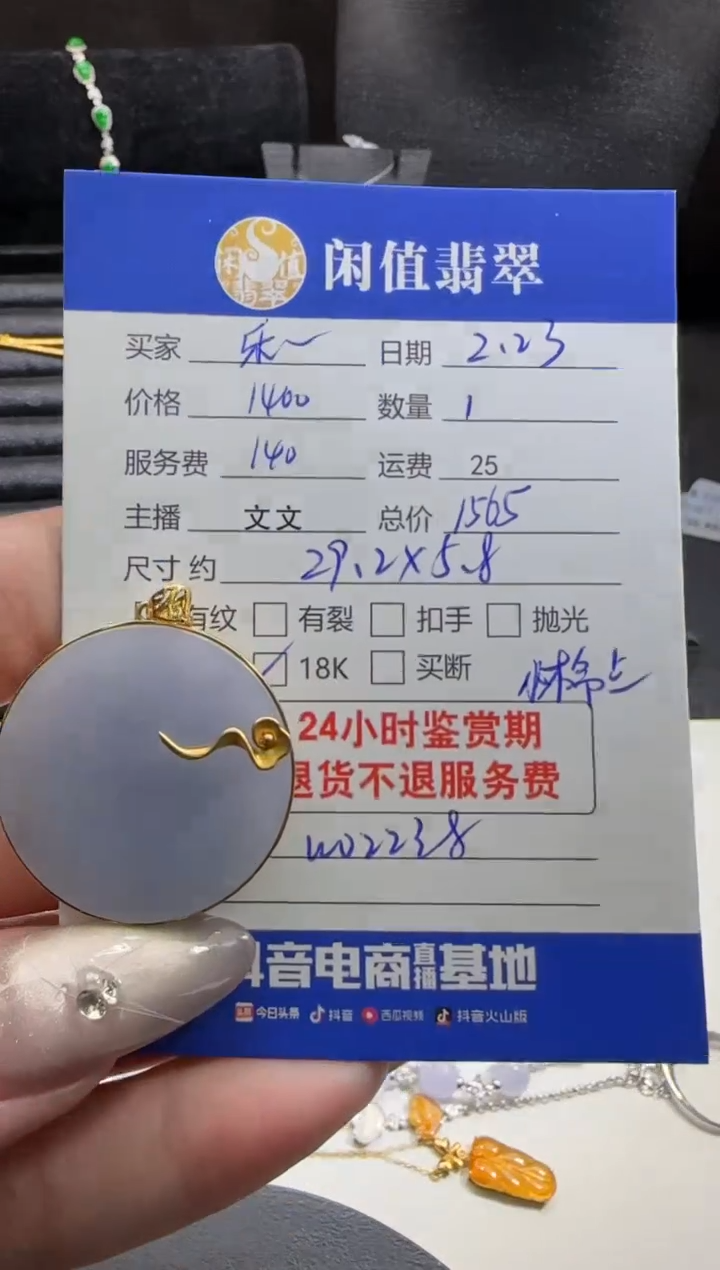 闲值翡翠
闲值翡翠
买家 乐一 日期 2.23
价格 1400 数量 1
服务费 140 运费 25
主播 文文 总价 1565
尺寸 约 29.2×5.8
有纹 有裂 扣手 抛光
18K 买断
24小时鉴赏期
退货不退服务费
W02238
抖音电商直播基地
头条 今日头条 抖音 西瓜视频 抖音火山版